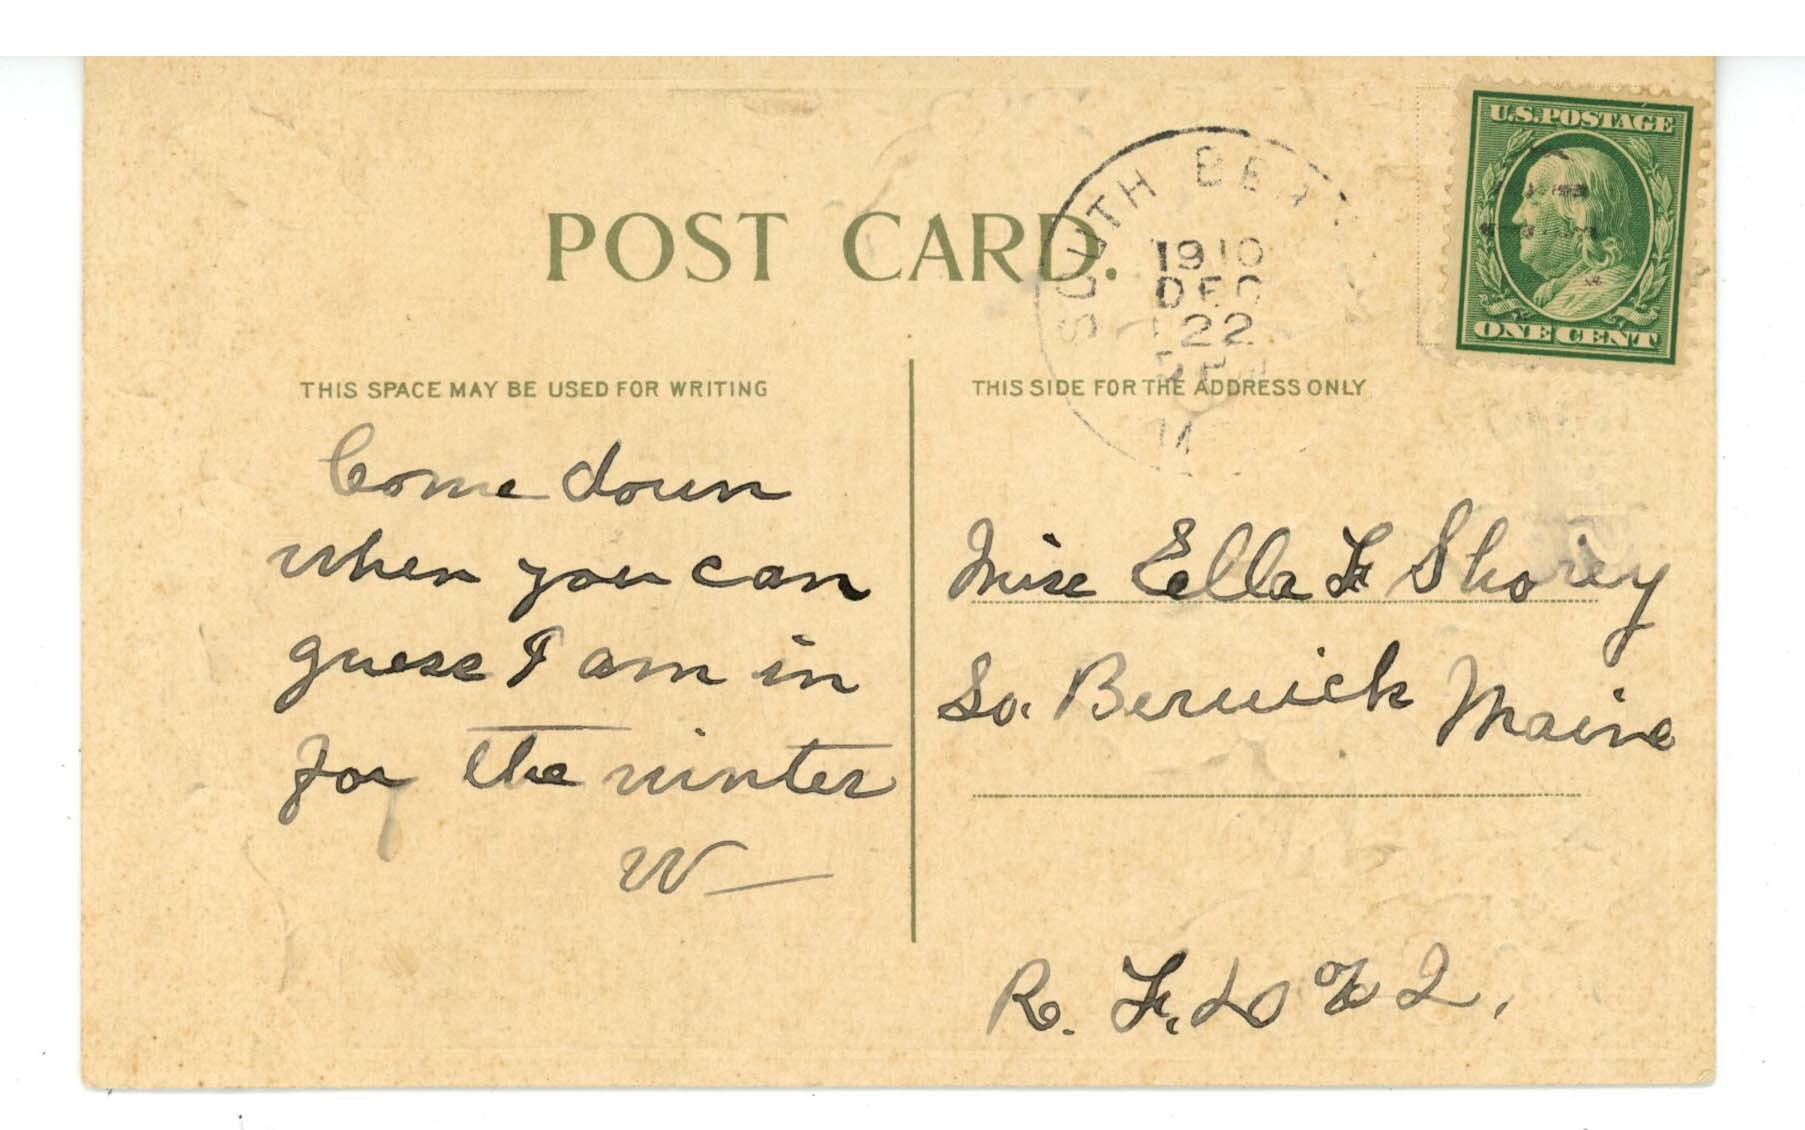 U.S. POSTAGE
ONE CENT
POST CARD.
SOUTH BER
1910
DEC
22
THIS SPACE MAY BE USED FOR WRITING
THIS SIDE FOR THE ADDRESS ONLY
Come down
when you can
guess I am in
for the winter
W
Miss Ella F Shorey
So. Berwick Maine
R. F. D % 2.